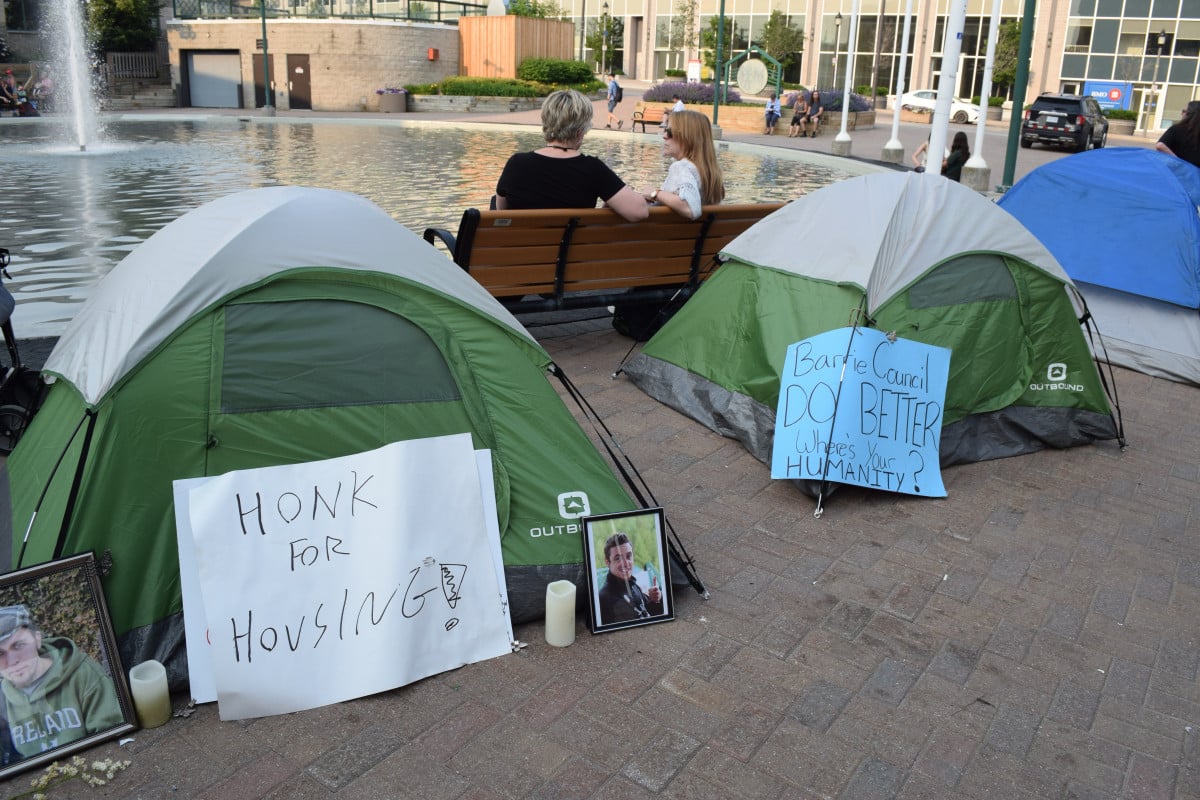 HONK
FOR
HOUSING!
Barrie Council
DO BETTER
Where's Your
HUMANITY?
OUTBOUND
BMO